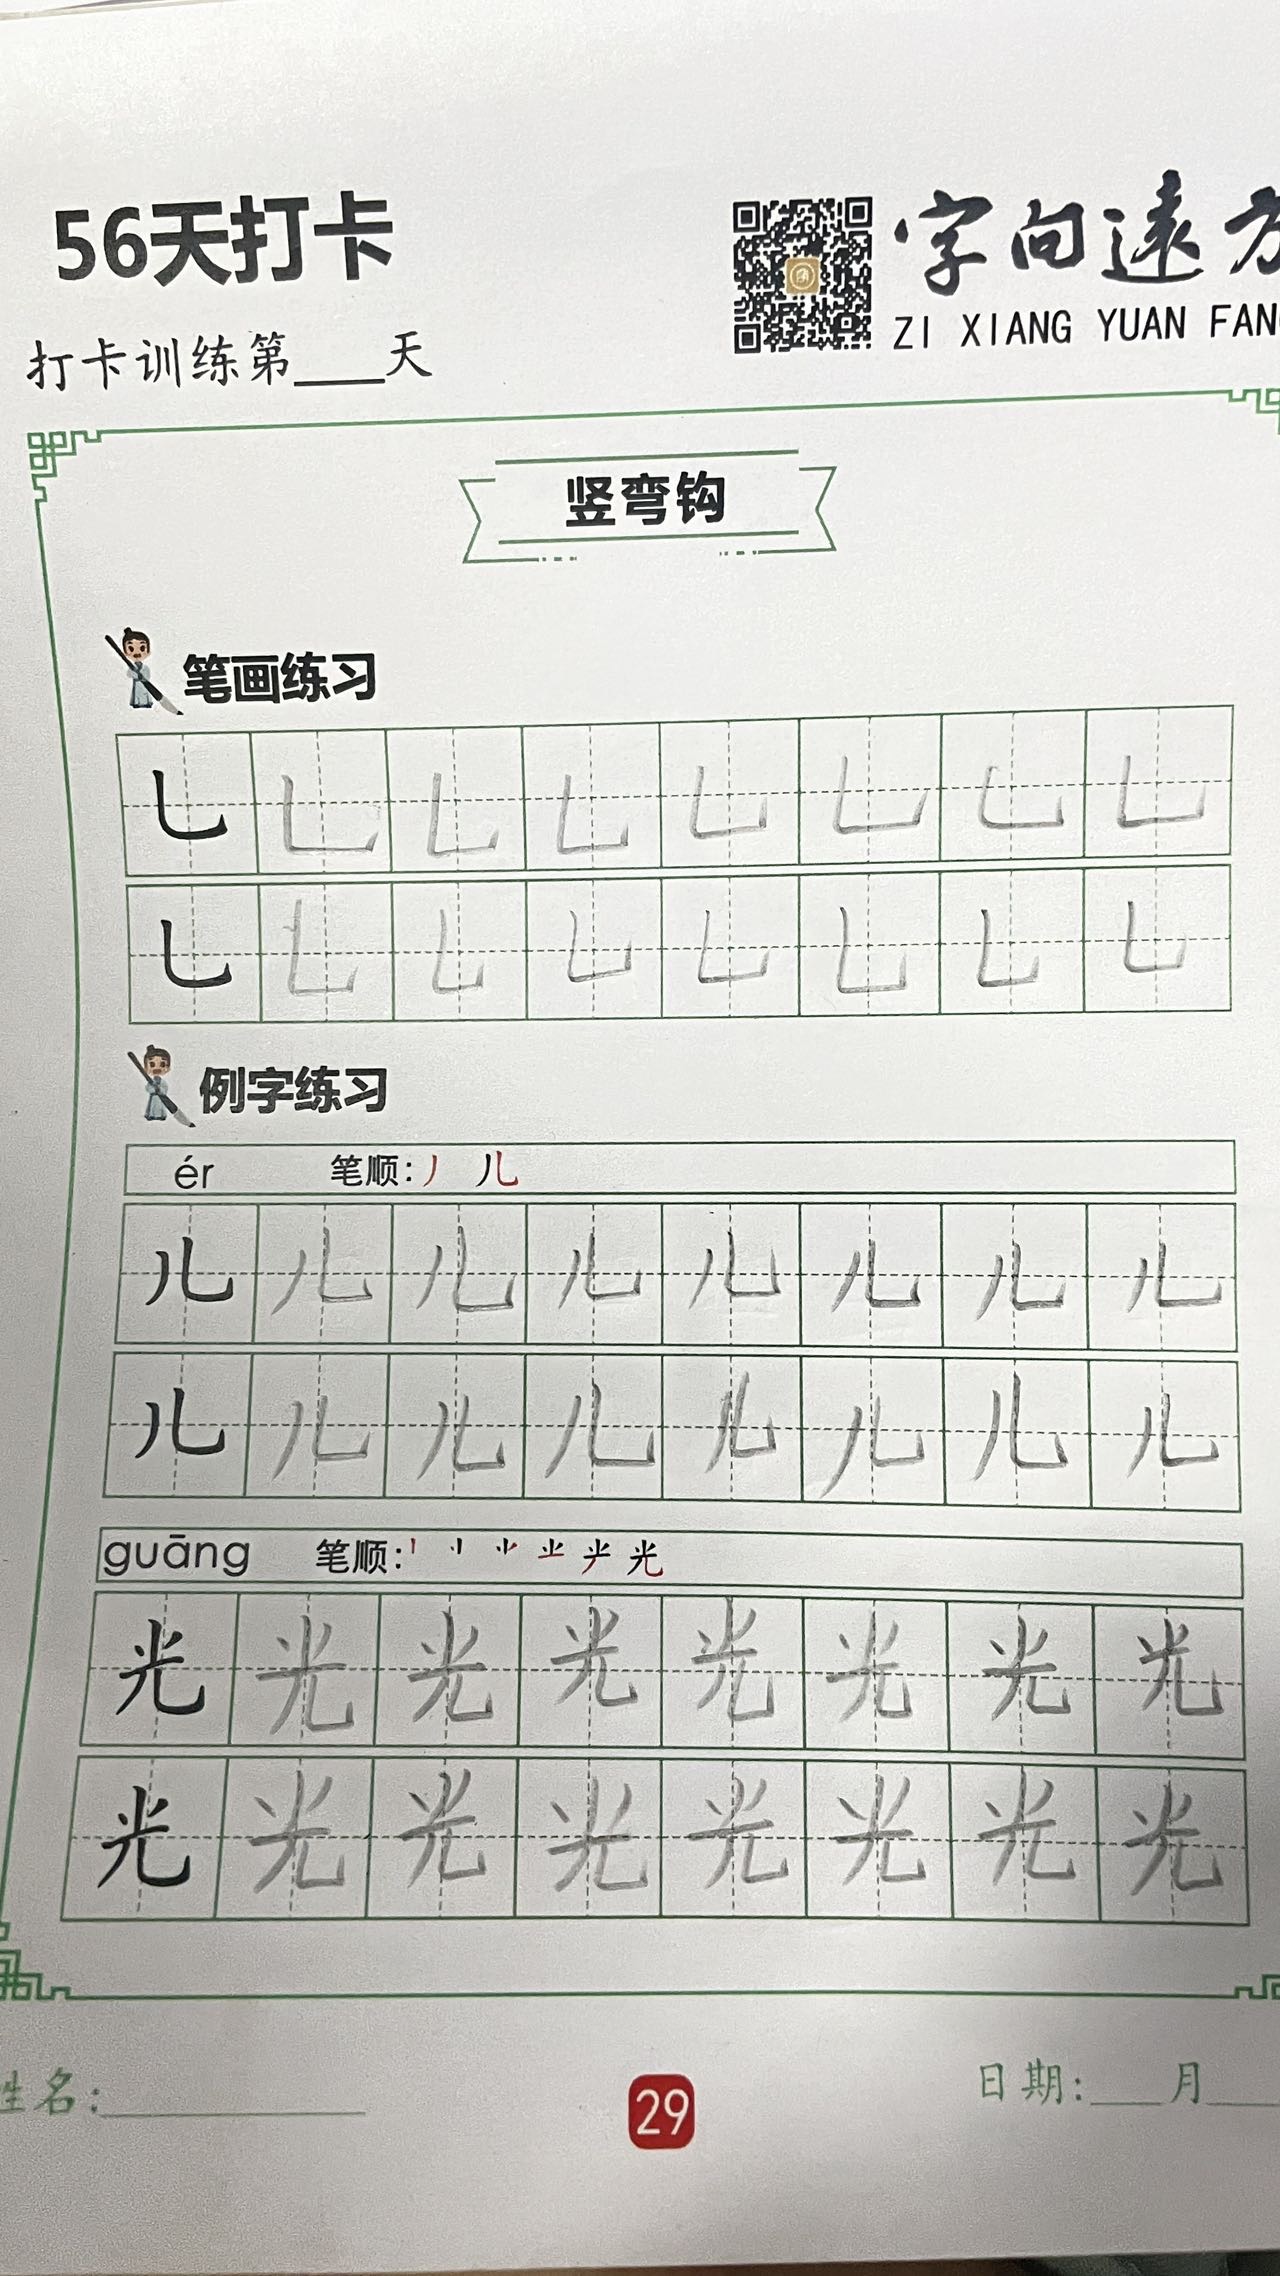 56天打卡
字向遠方
ZI XIANG YUAN FAN
打卡训练第___天
竖弯钩
笔画练习
乚 乚 乚 乚 乚 乚 乚 乚
乚 乚 乚 乚 乚 乚 乚 乚
例字练习
ér 笔顺:丿 儿
儿 儿 儿 儿 儿 儿 儿 儿
儿 儿 儿 儿 儿 儿 儿 儿
guāng 笔顺: 光
光 光 光 光 光 光 光 光
光 光 光 光 光 光 光 光
姓名:
29
日期:___月